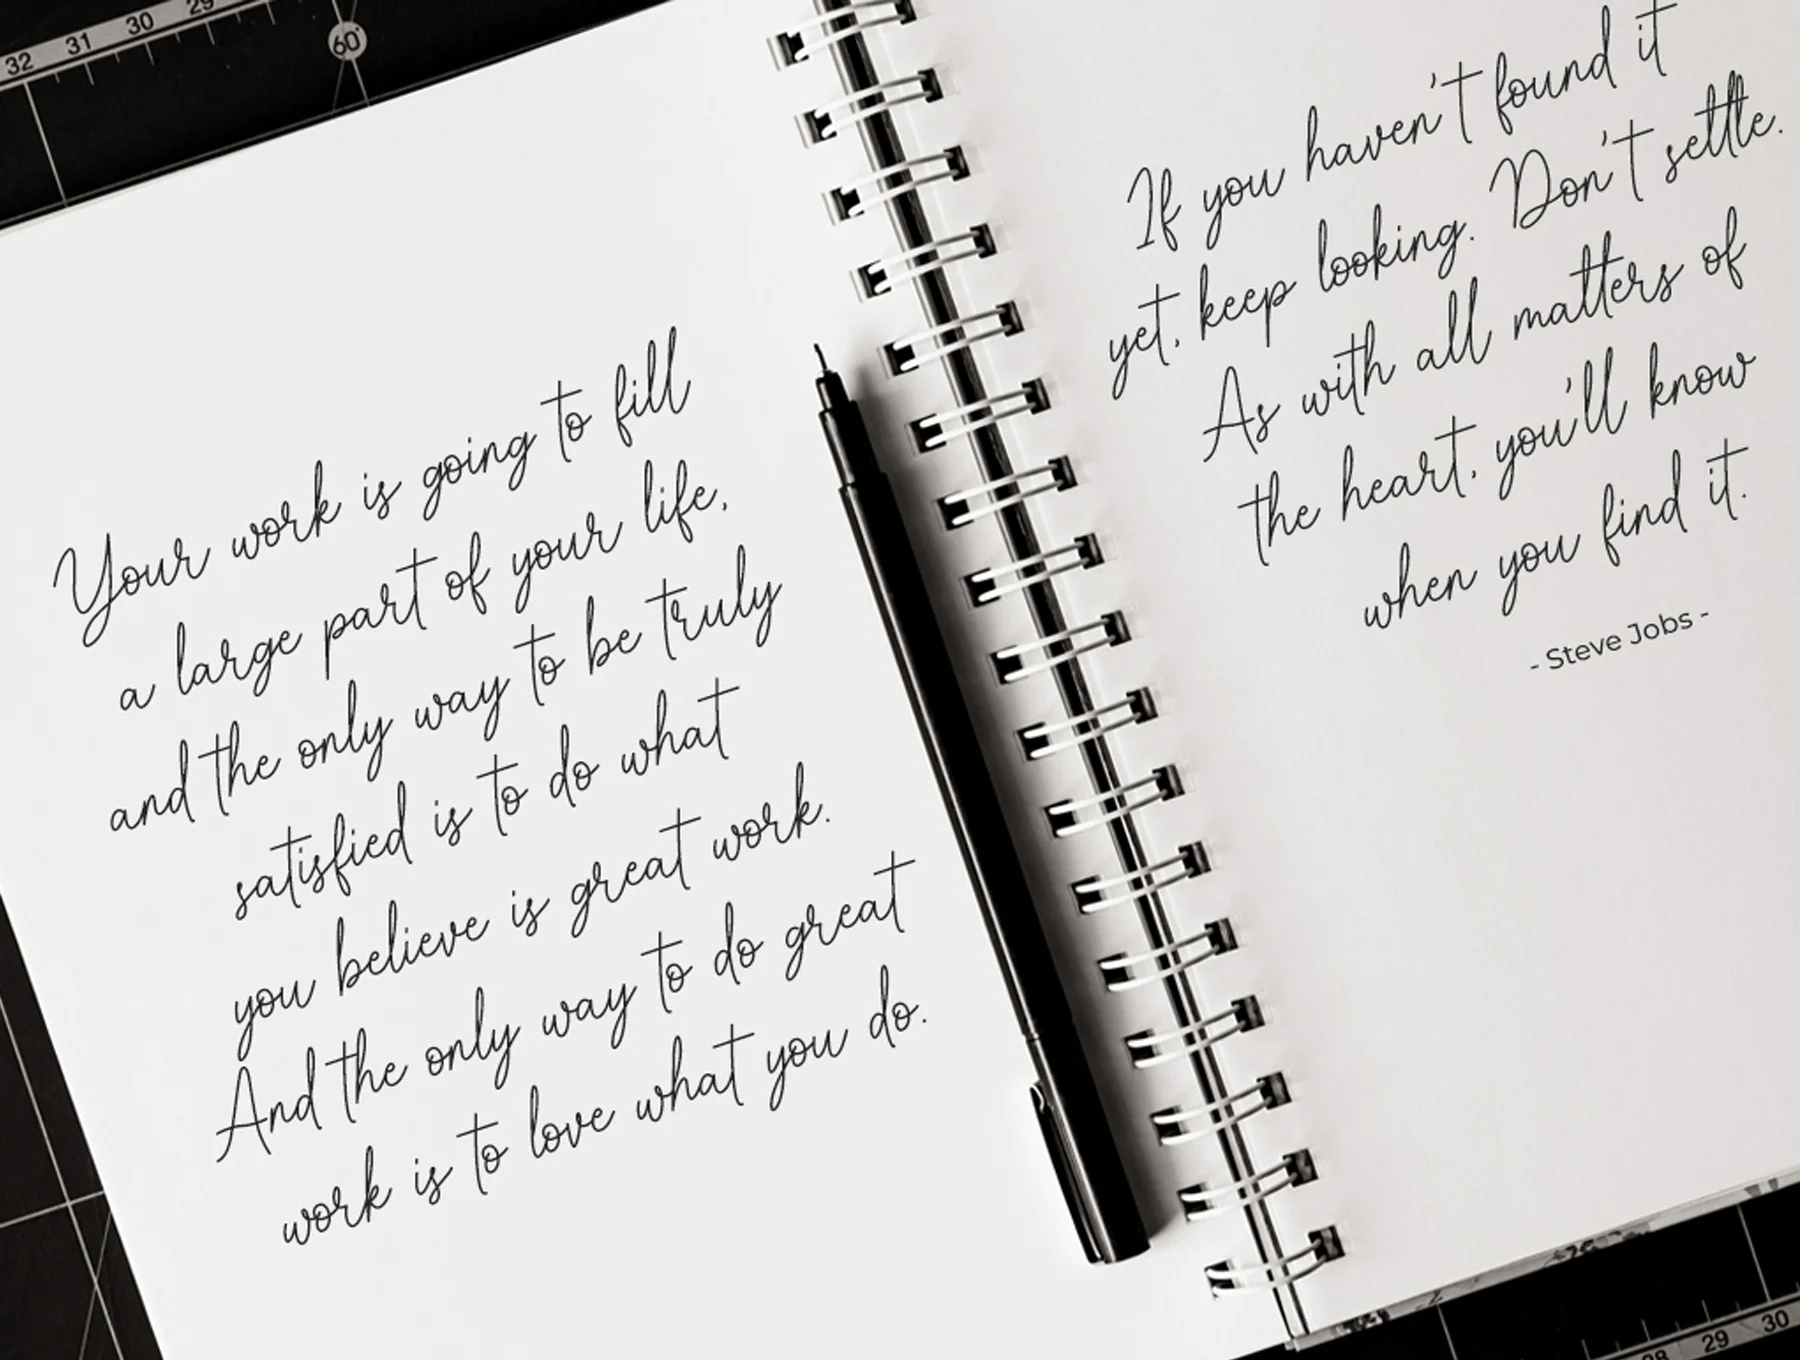 32 31 30 29
60°
Your work is going to fill
a large part of your life,
and the only way to be truly
satisfied is to do what
you believe is great work.
And the only way to do great
work is to love what you do.
If you haven't found it
yet, keep looking. Don't settle.
As with all matters of
the heart, you'll know
when you find it.
- Steve Jobs -
28 29 30